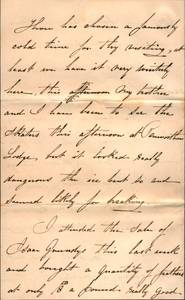 Thou has chosen a famously
cold time for thy visiting, at
least we have it very wintery
here, this afternoon My brother
and I have been to see the
Skaters this afternoon at
Lodge, but it looked really
dangerous the ice bent so and
seemed likely for breaking.
I attended the Sale of
this last week
and bought a quantity of
at only a pound. Really Good